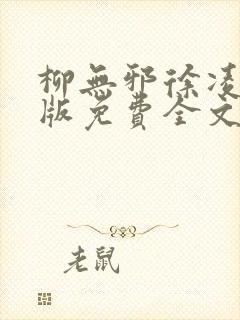 柳無邪徐凌
版免費全文
老鼠